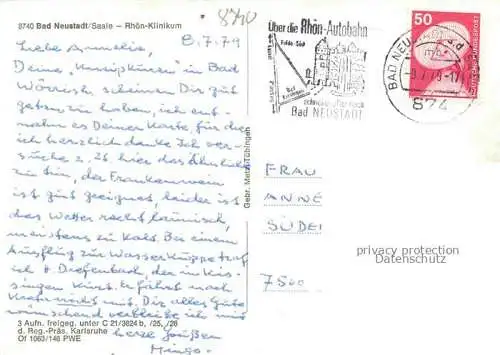 8740 Bad Neustadt/Saale – Rhön-Klinikum
8740
8.7.79
Liebe Annelie,
Deine „Kneippkuren" in Bad
Wörrish. scheinen Dir gut
getan zu haben, ich ent-
nahm es Deiner Karte, für die
ich herzlich danke. Ich ver-
suche z. Zt hier das Ähnliche
zu tun, der Frankenwein
ist gut geeignet, leider ist
das Wetter recht launisch,
meistens zu kalt. Bei einem
Ausflug zur Wasserkuppe traf
ich H. Diefenbach, der in Kis-
singen kurt. Er fährt nach
Kreta nicht mit. Dir alles Gute
wünschend verbleibe ich mit
herzl. Grüßen
3 Aufn. freigeg. unter C 21/3824 b, /25, /28
d. Reg.-Präs. Karlsruhe
Of 1063/148 PWE
Gebr. Metz, Tübingen
Über die Rhön-Autobahn
Fulda-Süd
Bad
Kissingen
schneller nach
Bad NEUSTADT
BAD NEUSTADT a.d.
-9.7.79-17
874
50
DEUTSCHE BUNDESPOST
FRAU
ANNE
SÜDEI
7500
privacy protection
Datenschutz